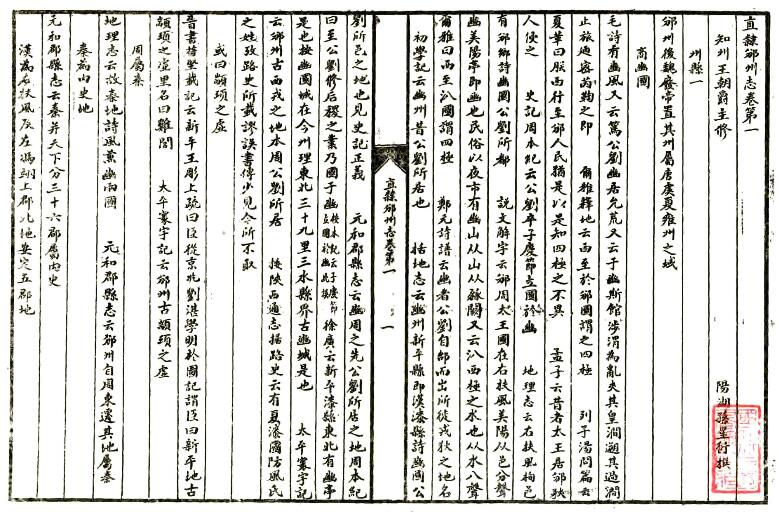 直隸邠州志卷第一
知州王朝爵主修 陽湖孫星衍撰
州縣一
邠州後魏廢帝置其州屬唐虞夏雍州之域
商幽國
毛詩有豳風又云篤公劉幽居允荒又云于幽斯館涉渭為亂夾其皇澗遡其過澗
止旅迺密芮鞫之即 爾雅釋地云西至於邠國謂之四極 列子湯問篇云
夏華曰朕西行至邠人民猶是以是知四極之不異 孟子云昔者太王居邠狄
人侵之 史記周本紀云公劉卒子慶節立國於幽 地理志云右扶風栒邑
有邠鄉詩幽國公劉所都 說文解字云邠周太王國在右扶風美陽从邑分聲
幽美陽亭即幽也民俗以夜市有幽山从山从豩闕又云汃西極之水也从水八聲
爾雅曰西至汃國謂四極 鄭元詩譜云幽者公劉自邰而出所徙戎狄之地名
初學記云幽州昔公劉所居也 括地志云幽州新平縣即漢漆縣詩幽國公
直隸邠州志卷第一 一
劉所邑之地也見史記正義 元和郡縣志云幽周之先公劉所居之地周本紀
曰至公劉修后稷之業乃國于幽 徐廣云新平漆縣東北有幽亭
是也按幽國城在今州理東北三十九里三水縣界古幽城是也 太平寰宇記
云邠州古西戎之地本周公劉所居 按陝西通志据路史云有夏漆國防風氏
之姓攷路史所載謬誤書傳少見今所不取
或曰顓頊之虛
晉書苻堅載記云新平王彫上疏曰臣從京兆劉湛學明於圖記謂臣曰新平地古
顓頊之虛里名曰雞閭 太平寰宇記云邠州古顓頊之虛
周屬秦
地理志云故秦地詩風兼幽兩國 元和郡縣志云邠州自周東遷其地屬秦
秦為內史地
元和郡縣志云秦并天下分三十六郡屬內史
漢為右扶風及左馮翊上郡北地安定五郡地